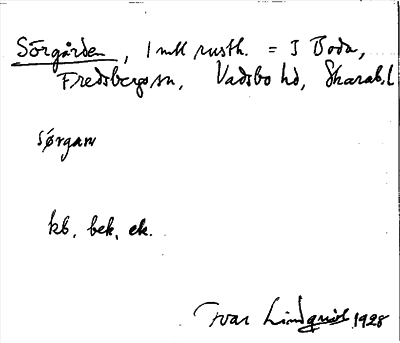 Sörgården, 1 mtl rusth. = I Boda,
Fredsbergs sn, Vadsbo hd, Skarab. l
sørgaɳ
kb. bek. ek.
Ivar Lindquist 1928